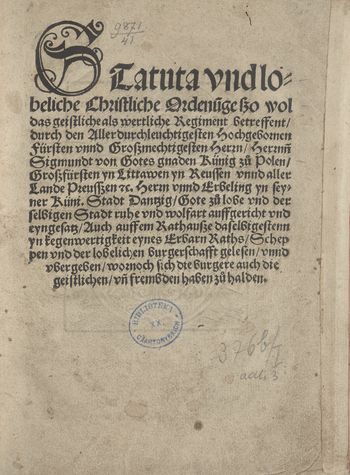 9871
41
Statuta vnd lo-
beliche Christliche Ordenũge ßo wol
das geistliche als wertliche Regiment betreffent/
durch den Aller durchleuchtigesten Hochgebornen
Fürsten vnnd Großmechtigesten Herrn/ Herrnn
Sigmundt von Gotes gnaden Künig zů Polen/
Großfürsten yn Littawen yn Reussen vnnd aller
Lande Preusszen ꝛc. Herrn vnnd Erbeling yn sey-
ner Küni. Stadt Dantzig/ Gote zů lobe vnd der
selbigen Stadt ruhe vnd wolfart auffgericht vnd
eyngesatz/ Auch auffem Rathauße daselbigestenn
yn kegenwertigkeit eynes Erbarn Raths/ Schep-
pen vnd der lobelichen burgerschafft gelesen/ vnnd
vbergeben/ wornoch sich die burgere auch die
geistlichen/ vñ frembden haben zů halden.
BIBLIOTEKA
XX.
CZARTORYSKICH
376 b/I
adl. 3